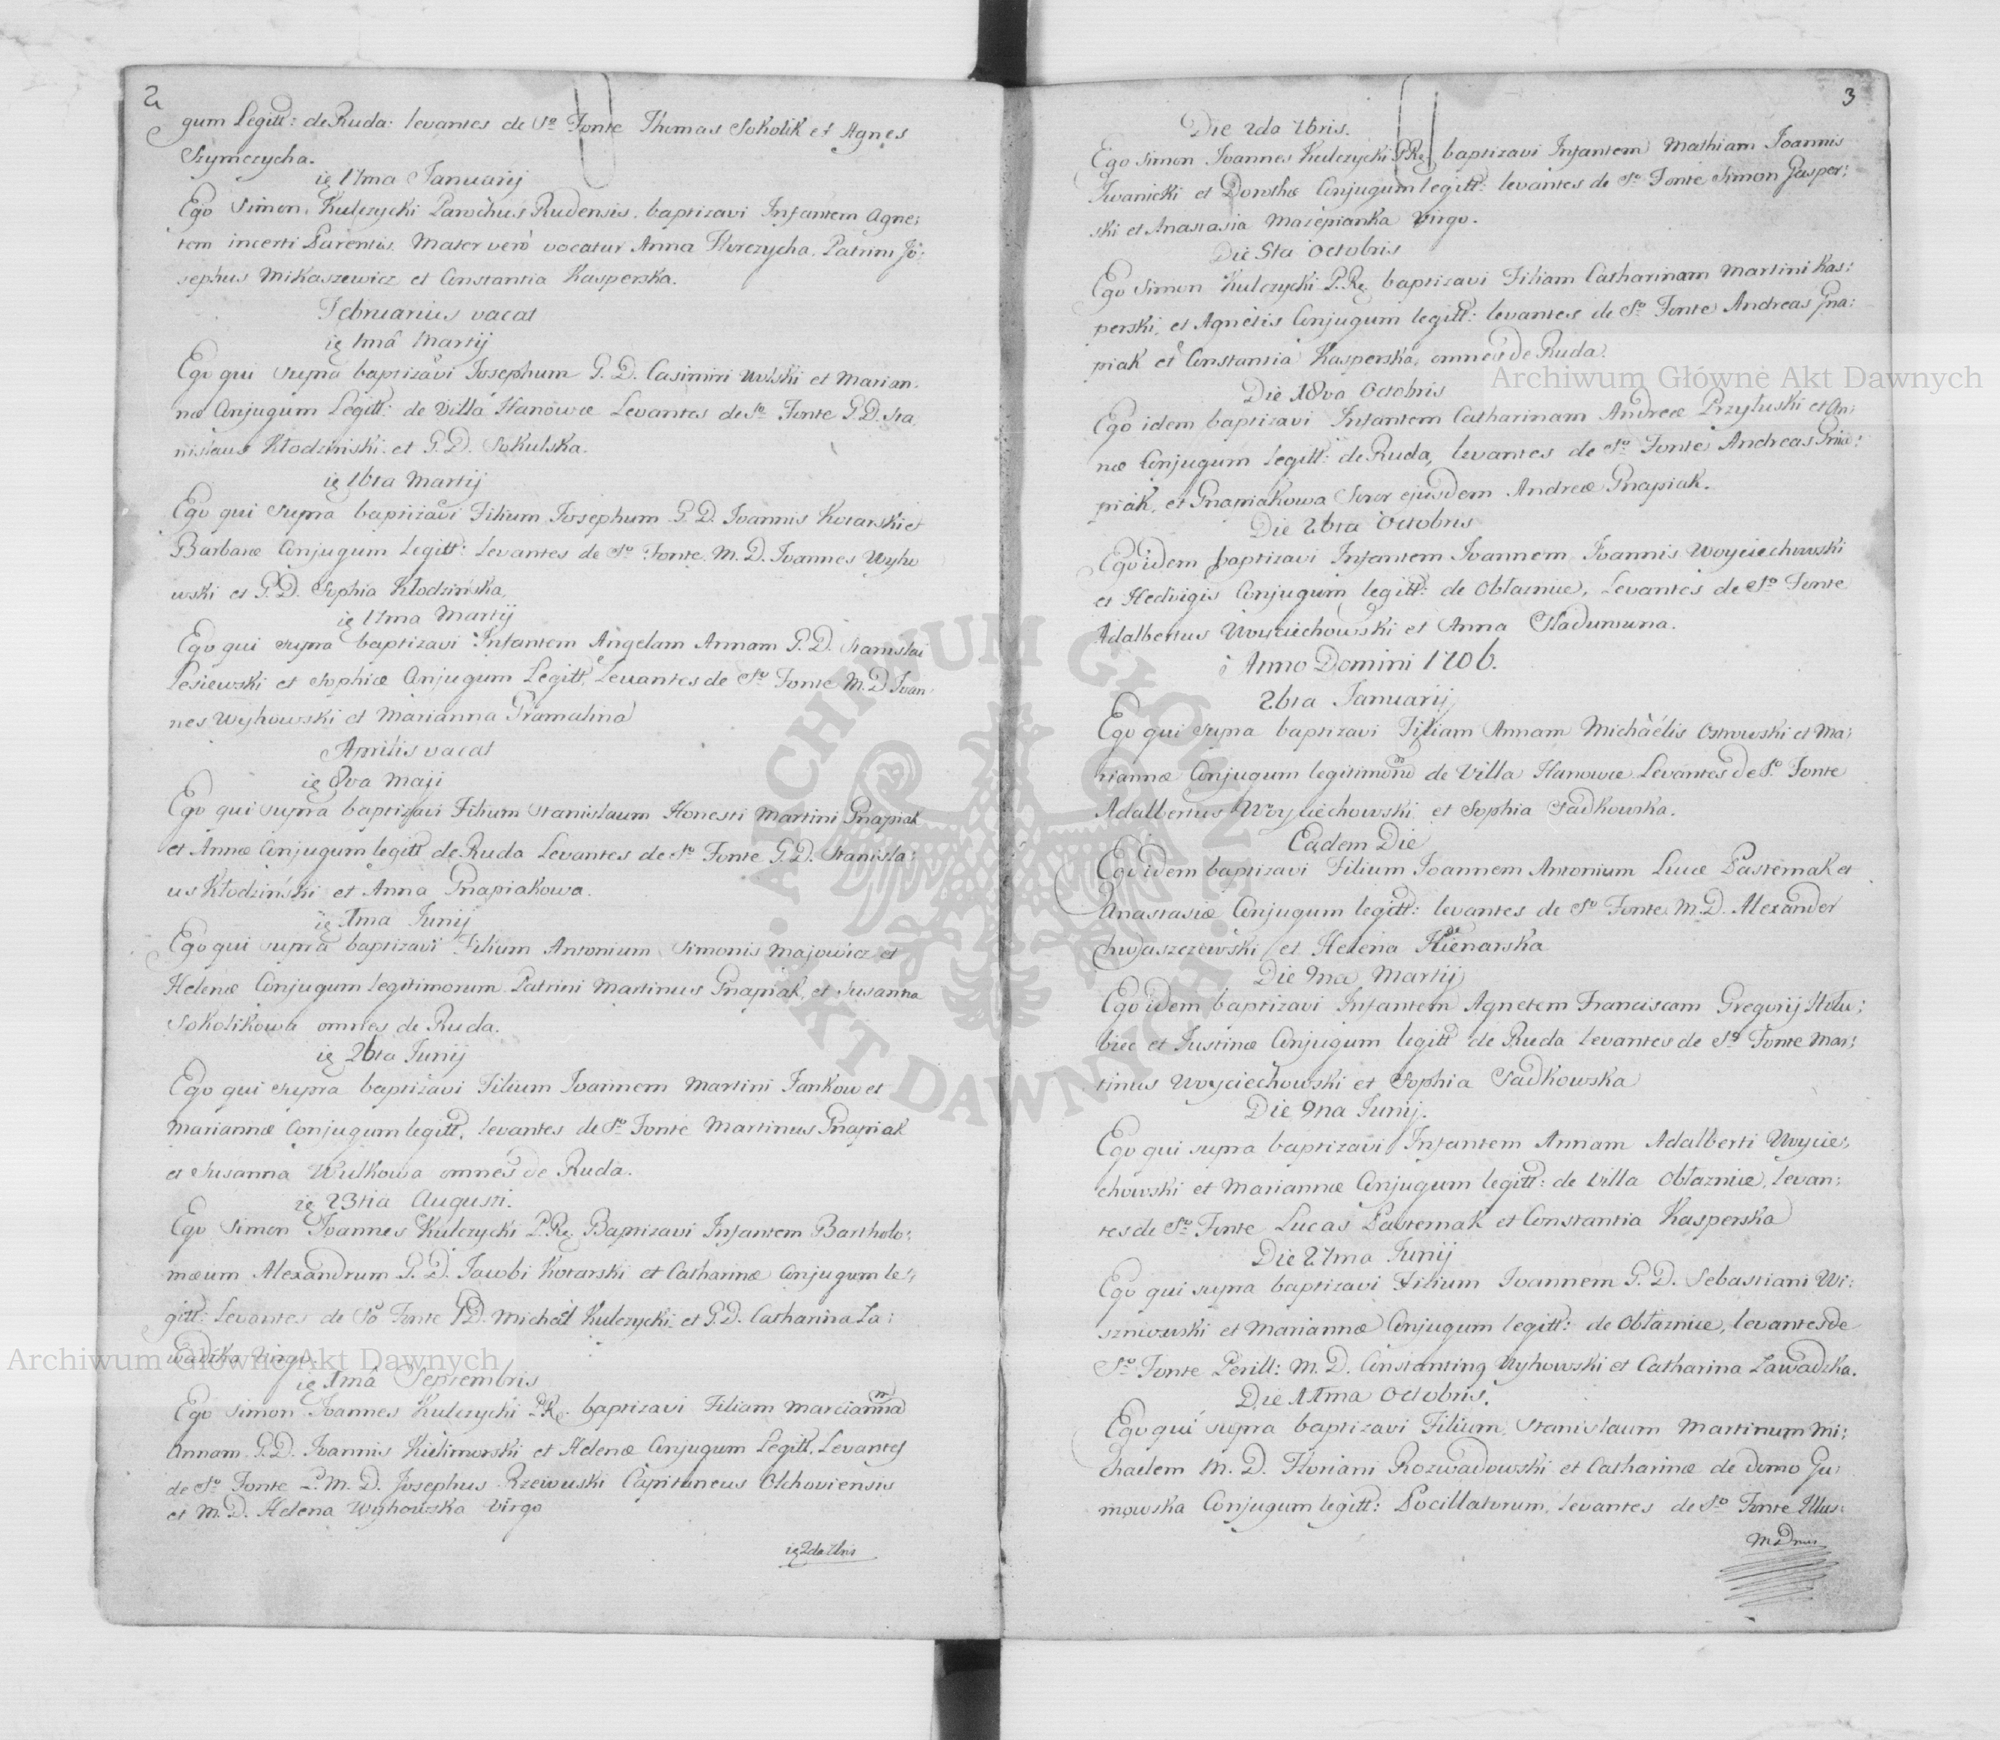 2
gum Legitt: de Ruda: levantes de So Fonte Thomas Sokolik et Agnes
Szymczycha.
17ma Januarij
Ego Simon Kulczycki Parochus Rudensis baptizavi Infantem Agne:
tem incerti Parentis. Mater vero vocatur Anna Patrini Jo:
sephus Mikaszewicz et Constantia Kasperska.
Februarius vacat
1ma Martij
Ego qui supra baptizavi Josephum G. D. Casimiri Wolski et Marian:
næ Conjugum Legitt: de Villa Hanowce Levantes de So Fonte G. D. Sta
nislaus Kłodzinski et G. D. Sokulska.
16ta Martij
Ego qui supra baptizavi Filium Josephum G. D. Joannis Kotarski et
Barbaræ Conjugum Legitt: levantes de So Fonte M. D. Joannes Wyho
wski et G. D. Sophia Kłodzińska.
17ma Martij
Ego qui supra baptizavi Infantem Angelam Annam G. D. Stanislai
Lesiewski et Sophiæ Conjugum Legitt. Levantes de So Fonte M. D. Joan:
nes Wyhowski et Marianna Gramalina
Aprilis vacat
8va Maji
Ego qui supra baptizavi Filium Stanislaum Honesti Martini Gnapiak
et Annæ Conjugum legitt de Ruda Levantes de So Fonte G. D. Stanisla:
us Kłodziński et Anna Gnapiakowa.
1ma Junij
Ego qui supra baptizavi Filium Antonium Simonis Majowicz et
Helenæ Conjugum legitimorum Patrini Martinus Gnapiak, et Susanna
Sokolikowa omnes de Ruda.
26ta Junij
Ego qui supra baptizavi Filium Joannem Martini Jankow et
Mariannæ Conjugum legitt. levantes de So Fonte Martinus Gnapiak
et Susanna Wulkowa omnes de Ruda.
23tia Augusti.
Ego Simon Joannes Kulczycki P.R. Baptizavi Infantem Bartholo:
mæum Alexandrum G. D. Jacobi Kotarski et Catharinæ Conjugum le:
gitt: Levantes de So Fonte G.D. Michael Kulczycki et G.D. Catharina Za:
wadzka Virgo.
1ma Septembris
Ego Simon Joannes Kulczycki P.R. baptizavi Filiam Mariannam
Annam G. D. Joannis Kielimorski et Helenæ Conjugum Legitt. Levantes
de So Fonte P. M. D. Josephus Rzewuski Capitaneus Olchoviensis
et M. D. Helena Wyhowska Virgo
2da 7bris
3
Die 2da 7bris.
Ego Simon Joannes Kulczycki P.R. baptizavi Infantem Mathiam Joannis
Iwanicki et Dorothæ Conjugum legitt: levantes de So Fonte Simon Gasper:
ski et Anastasia Mazepianka Virgo.
Die 5ta Octobris
Ego Simon Kulczycki P.R. baptizavi Filiam Catharinam Martini Kas:
perski, et Agnetis Conjugum legitt: levantes de So Fonte Andreas Gna:
piak et Constantia Kasperska, omnes de Ruda.
Die 18va Octobris
Ego idem baptizavi Infantem Catharinam Andreæ Przyłuski et An:
næ Conjugum legitt: de Ruda, levantes de So Fonte Andreas Gna:
piak, et Gnapiakowa Soror ejusdem Andreæ Gnapiak.
Die 26ta Octobris
Ego idem baptizavi Infantem Joannem Joannis Woyciechowski
et Hedvigis Conjugum legitt: de Obłaznice, Levantes de So Fonte
Adalbertus Woyciechowski et Anna
Anno Domini 1706.
26ta Januarij
Ego qui supra baptizavi Filiam Annam Michaelis Ostrowski et Ma:
riannæ Conjugum legitimorum de Villa Hanowce Levantes de So Fonte
Adalbertus Woyciechowski et Sophia Sadkowska.
Eadem Die
Ego idem baptizavi Filium Joannem Antonium Lucæ Pasternak et
Anastasiæ Conjugum legitt: levantes de So Fonte M. D. Alexander
Chwaszczewski et Helena
Die 9na Martij
Ego idem baptizavi Infantem Agnetem Franciscam Gregorij Hołu:
biec et Justinæ Conjugum legitt de Ruda levantes de So Fonte Mar:
tinus Woyciechowski et Sophia Sadkowska
Die 9na Junij.
Ego qui supra baptizavi Infantem Annam Adalberti Woycie:
chowski et Mariannæ Conjugum legitt: de Villa Obłaznice, levan:
tes de So Fonte Lucas Pasternak et Constantia Kasperska
Die 27ma Junij
Ego qui supra baptizavi Filium Joannem G. D. Sebastiani Wi:
szniowski et Mariannæ Conjugum legitt: de Obłaznice, levantes de
So Fonte Perill: M. D. Constantinus Wyhowski et Catharina Zawadzka.
Die 11ma Octobris.
Ego qui supra baptizavi Filium Stanislaum Martinum Mi:
chaelem M. D. Floriani Rozwadowski et Catharinæ de domo Gu:
mowska Conjugum legitt: Pocillatorum, levantes de So Fonte Illus:
M Dnus
Archiwum Główne Akt Dawnych
Archiwum Główne Akt Dawnych
ARCHIWUM GŁÓWNE AKT DAWNYCH